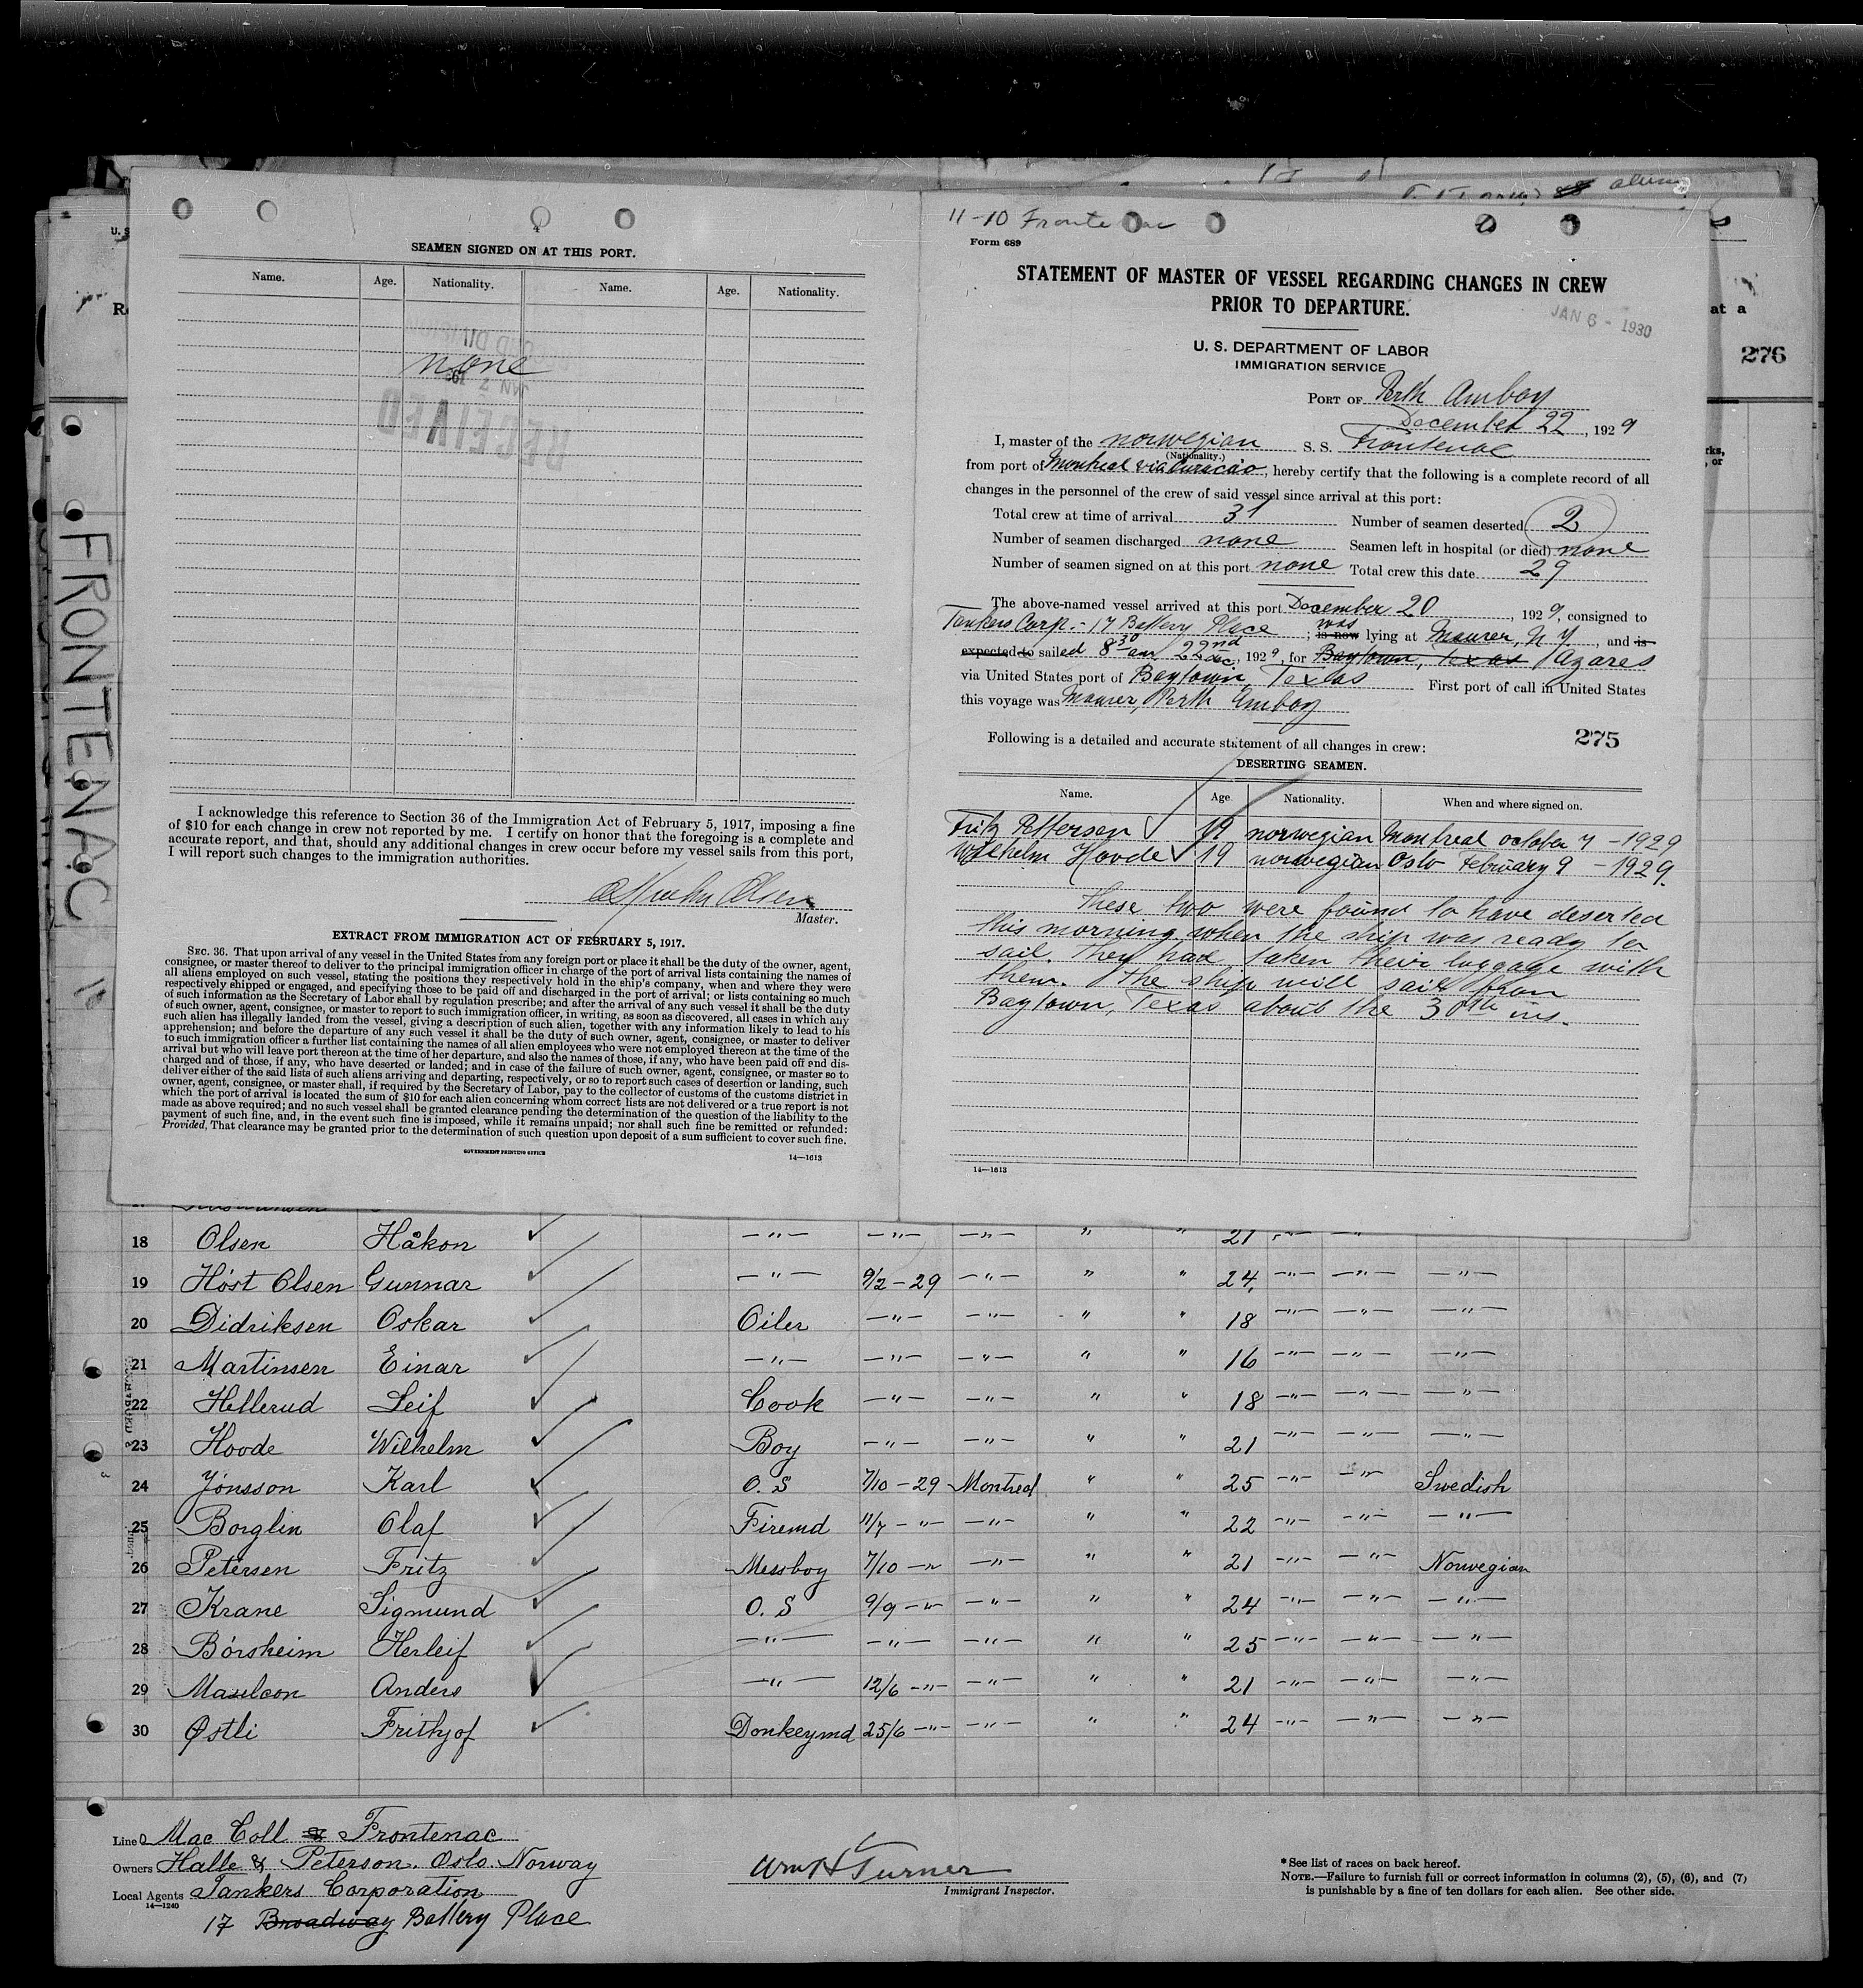 SEAMEN SIGNED ON AT THIS PORT.
Name. Age. Nationality. Name. Age. Nationality.
none
RECEIVED
JAN 7 193
I acknowledge this reference to Section 36 of the Immigration Act of February 5, 1917, imposing a fine
of $10 for each change in crew not reported by me. I certify on honor that the foregoing is a complete and
accurate report, and that, should any additional changes in crew occur before my vessel sails from this port,
I will report such changes to the immigration authorities.
Olsen
Master.
EXTRACT FROM IMMIGRATION ACT OF FEBRUARY 5, 1917.
SEC. 36. That upon arrival of any vessel in the United States from any foreign port or place it shall be the duty of the owner, agent,
consignee, or master thereof to deliver to the principal immigration officer in charge of the port of arrival lists containing the names of
all aliens employed on such vessel, stating the positions they respectively hold in the ship's company, when and where they were
respectively shipped or engaged, and specifying those to be paid off and discharged in the port of arrival; or lists containing so much
of such information as the Secretary of Labor shall by regulation prescribe; and after the arrival of any such vessel it shall be the duty
of such owner, agent, consignee, or master to report to such immigration officer, in writing, as soon as discovered, all cases in which any
such alien has illegally landed from the vessel, giving a description of such alien, together with any information likely to lead to his
apprehension; and before the departure of any such vessel it shall be the duty of such owner, agent, consignee, or master to deliver
to such immigration officer a further list containing the names of all alien employees who were not employed thereon at the time of the
arrival but who will leave port thereon at the time of her departure, and also the names of those, if any, who have been paid off and dis-
charged and of those, if any, who have deserted or landed; and in case of the failure of such owner, agent, consignee, or master so to
deliver either of the said lists of such aliens arriving and departing, respectively, or so to report such cases of desertion or landing, such
owner, agent, consignee, or master shall, if required by the Secretary of Labor, pay to the collector of customs of the customs district in
which the port of arrival is located the sum of $10 for each alien concerning whom correct lists are not delivered or a true report is not
made as above required; and no such vessel shall be granted clearance pending the determination of the question of the liability to the
payment of such fine, and, in the event such fine is imposed, while it remains unpaid; nor shall such fine be remitted or refunded:
Provided, That clearance may be granted prior to the determination of such question upon deposit of a sum sufficient to cover such fine.
GOVERNMENT PRINTING OFFICE
14—1613
FRONTENAC
11-10 Frontenac
Form 689
STATEMENT OF MASTER OF VESSEL REGARDING CHANGES IN CREW
PRIOR TO DEPARTURE.
JAN 6 - 1930
U. S. DEPARTMENT OF LABOR
IMMIGRATION SERVICE
at a
276
PORT OF Perth Amboy
December 22, 1929
I, master of the norwegian S. S. Frontenac
(Nationality.)
from port of Montreal via Curacao, hereby certify that the following is a complete record of all
changes in the personnel of the crew of said vessel since arrival at this port:
Total crew at time of arrival 31 Number of seamen deserted 2
Number of seamen discharged none Seamen left in hospital (or died) none
Number of seamen signed on at this port none Total crew this date 29
The above-named vessel arrived at this port December 20, 1929, consigned to
Tankers Corp. - 17 Battery Place; is now was lying at Maurer, N Y, and is
expected to sailed 8 30 am 22nd Dec., 1929, for Baytown, Texas Azores
via United States port of Baytown, Texas First port of call in United States
this voyage was Maurer, Perth Amboy
Following is a detailed and accurate statement of all changes in crew: 275
DESERTING SEAMEN.
Name. Age. Nationality. When and where signed on.
Fritz Pettersen 19 norwegian Montreal october 7 - 1929
Wilhelm Hovde 19 norwegian Oslo February 9 - 1929.
These two were found to have deserted
this morning when the ship was ready to
sail. They had taken their luggage with
them. The ship will sail from
Baytown, Texas about the 30th ins.
14—1613
18 Olsen Håkon —"— —"— —"— " " 21 —"— —"—
19 Høst Olsen Gunnar —"— 9/2-29 —"— " " 24. —"— —"— —"—
20 Didriksen Oskar Oiler —"— —"— " " 18 —"— —"— —"—
21 Martinsen Einar —"— —"— —"— " " 16 —"— —"— —"—
22 Hellerud Leif Cook —"— —"— " " 18 —"— —"— —"—
23 Hovde Wilhelm Boy —"— —"— " " 21 —"— —"— —"—
24 Jónsson Karl O. S 7/10-29 Montreal " " 25 —"— —"— Swedish
25 Borglin Olaf Firemd 11/7-"- —"— " " 22 —"— —"— —"—
26 Petersen Fritz Messboy 7/10-"- —"— " " 21 —"— —"— Norwegian
27 Krane Sigmund O. S 9/9-"- —"— " " 24 —"— —"— —"—
28 Börsheim Herleif —"— —"— —"— " " 25 —"— —"— —"—
29 Anders —"— 12/6-"- —"— " " 21 —"— —"— —"—
30 Østli Frithjof Donkeymd 25/6-"- —"— " " 24 —"— —"— —"—
Line Mac Coll Frontenac
Owners Halle & Peterson. Oslo. Norway
Local Agents Tankers Corporation
14—1240
17 Broadway Battery Place
Wm H Turner
Immigrant Inspector.
*See list of races on back hereof.
NOTE.—Failure to furnish full or correct information in columns (2), (5), (6), and (7)
is punishable by a fine of ten dollars for each alien. See other side.